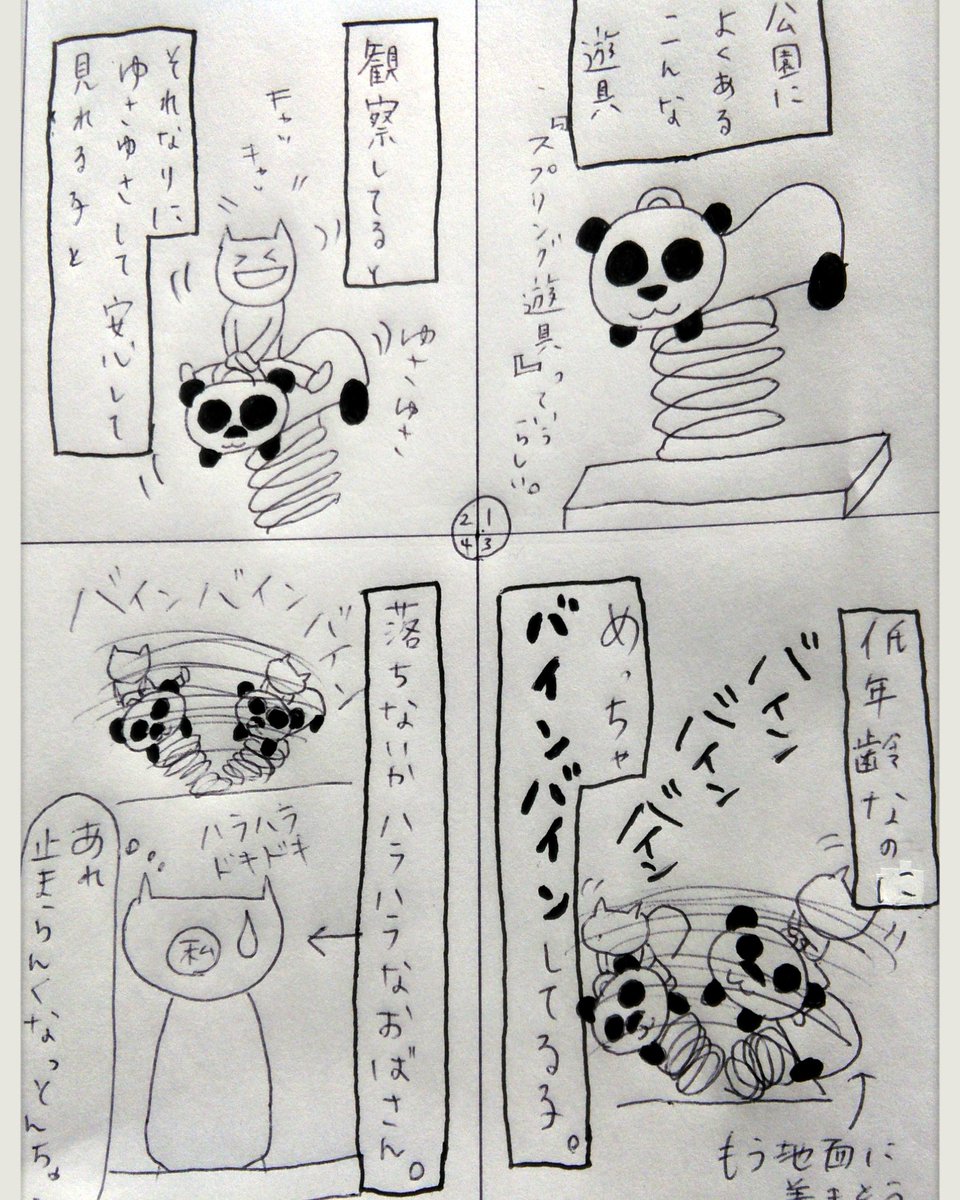 公園に
よくある
こんな
遊具
『スプリング遊具』っていう
らしい。
1
2
3
4
観察してると
キャッ
キャッ
ゆさゆさ
それなりに
ゆさゆさして安心して
見れる子と
低年齢なのに
バイン
バイン
バイン
めっちゃ
バインバインしてる子。
もう地面に
落ちないかハラハラなおばさん。
バインバイン
バイン
ハラハラ
ドキドキ
私
あれ
止まらんくなっとんちゃ